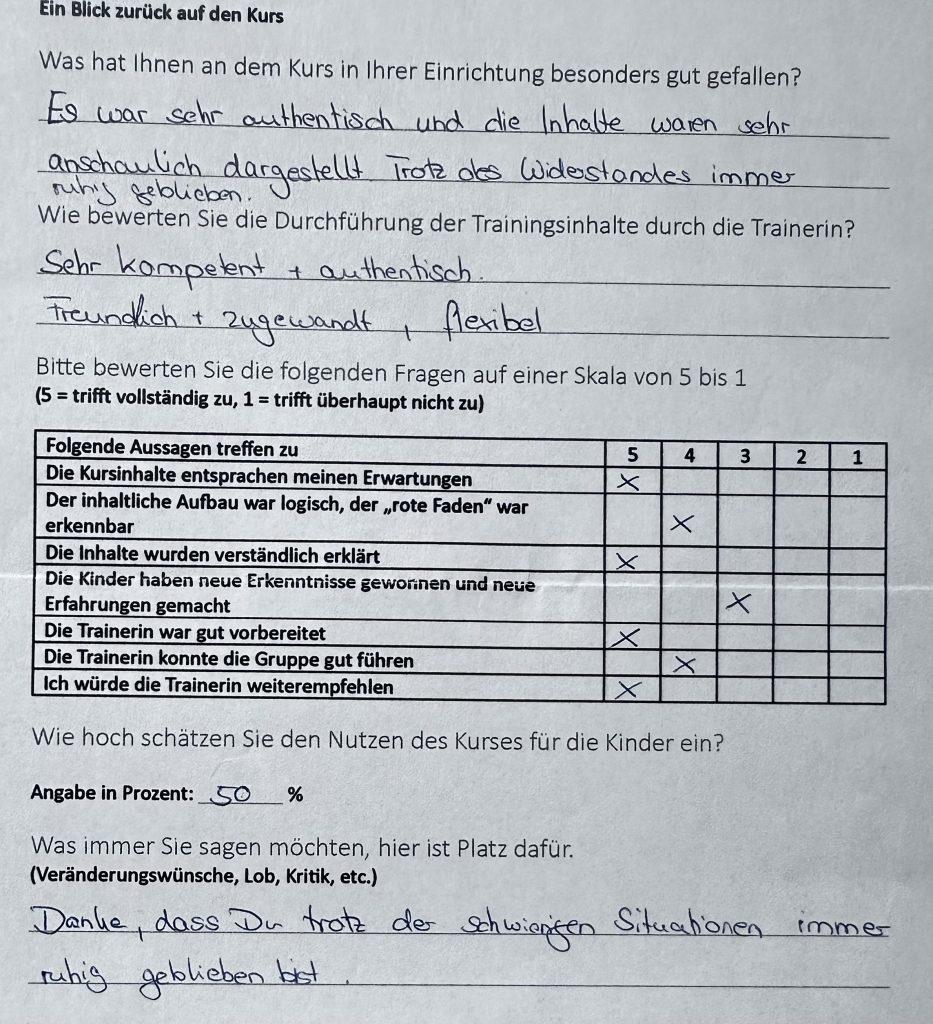 Ein Blick zurück auf den Kurs
Was hat Ihnen an dem Kurs in Ihrer Einrichtung besonders gut gefallen?
Es war sehr authentisch und die Inhalte waren sehr
anschaulich dargestellt Trotz des Widerstandes immer
ruhig geblieben.
Wie bewerten Sie die Durchführung der Trainingsinhalte durch die Trainerin?
Sehr kompetent + authentisch.
Freundlich + zugewandt, flexibel
Bitte bewerten Sie die folgenden Fragen auf einer Skala von 5 bis 1
(5 = trifft vollständig zu, 1 = trifft überhaupt nicht zu)
Folgende Aussagen treffen zu 5 4 3 2 1
Die Kursinhalte entsprachen meinen Erwartungen X
Der inhaltliche Aufbau war logisch, der „rote Faden“ war
erkennbar X
Die Inhalte wurden verständlich erklärt X
Die Kinder haben neue Erkenntnisse gewonnen und neue
Erfahrungen gemacht X
Die Trainerin war gut vorbereitet X
Die Trainerin konnte die Gruppe gut führen X
Ich würde die Trainerin weiterempfehlen X
Wie hoch schätzen Sie den Nutzen des Kurses für die Kinder ein?
Angabe in Prozent: 50 %
Was immer Sie sagen möchten, hier ist Platz dafür.
(Veränderungswünsche, Lob, Kritik, etc.)
Danke, dass Du trotz der schwierigen Situationen immer
ruhig geblieben bist.